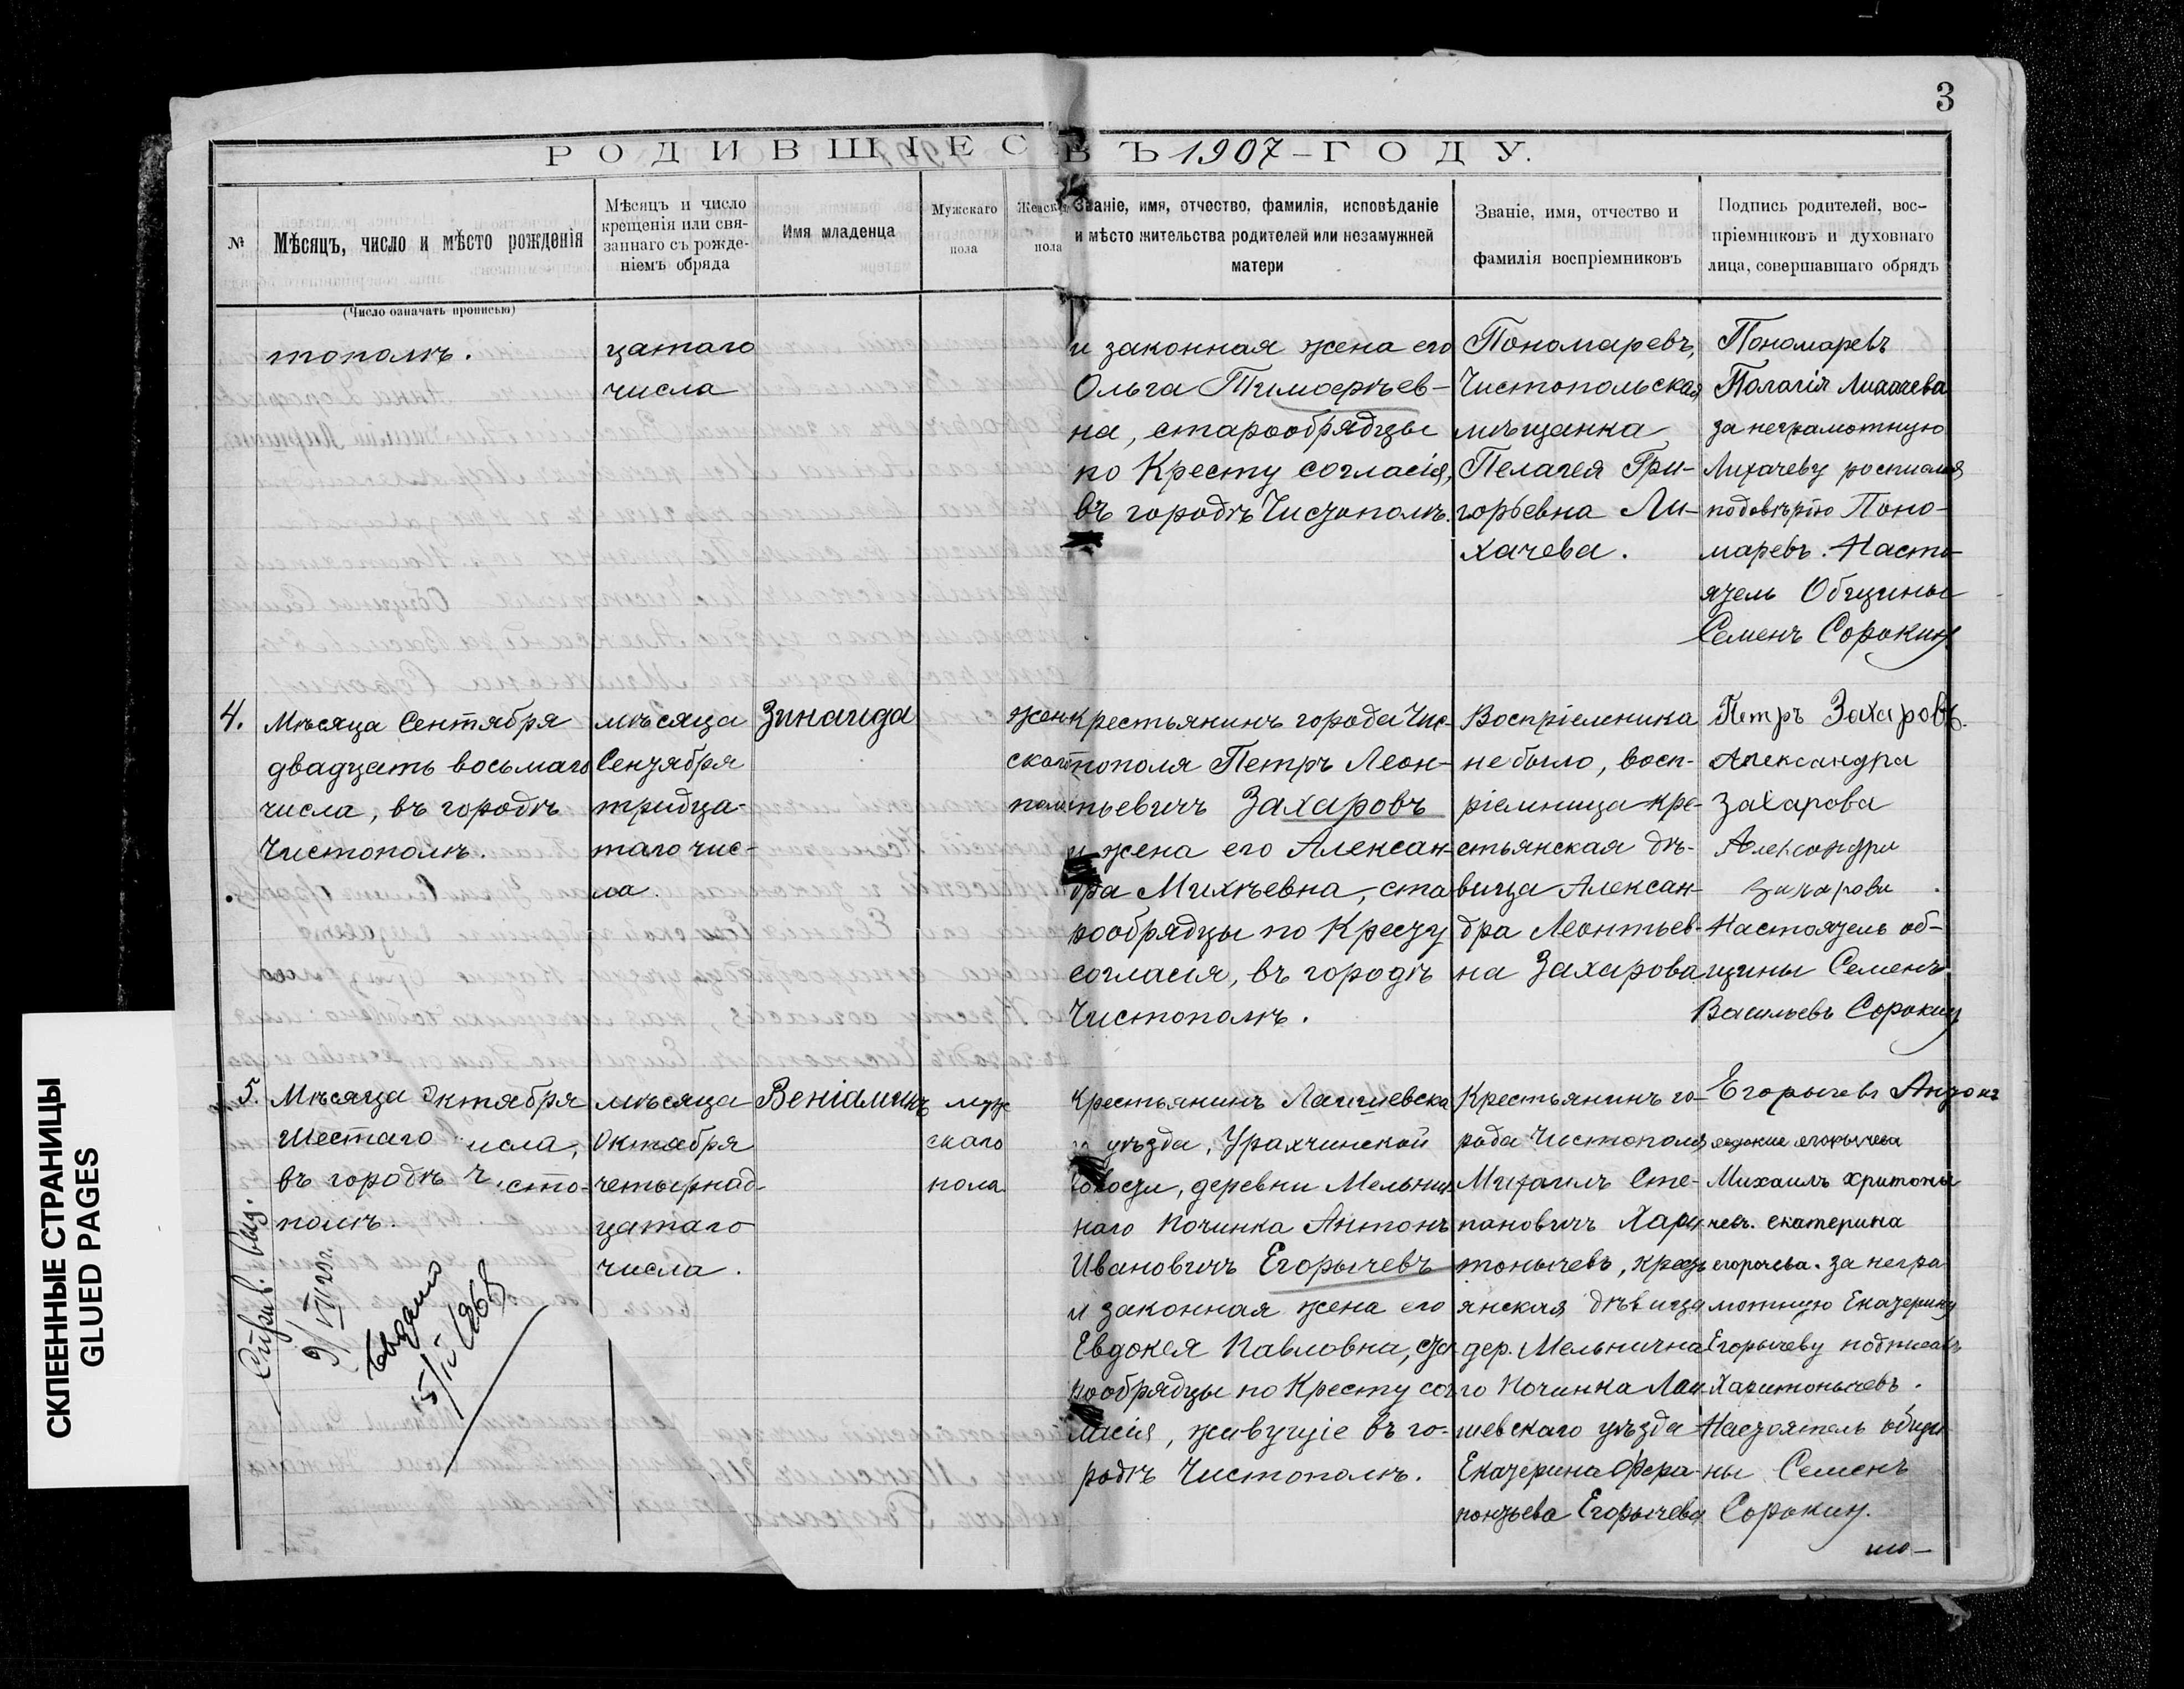 3
РОДИВШІЕС ВЪ 1907 - ГОДУ.
№
Мѣсяцъ, число и мѣсто рожденія
(Число означать прописью)
Мѣсяцъ и число
крещенія или свя-
заннаго съ рожде-
ніемъ обряда
Имя младенца
Мужскаго
пола
Женска
пола
Званіе, имя, отчество, фамилія, исповѣданіе
и мѣсто жительства родителей или незамужней
матери
Званіе, имя, отчество и
фамилія воспріемниковъ
Подпись родителей, вос-
пріемниковъ и духовнаго
лица, совершавшаго обрядъ
тополѣ.
цатаго
числа
и законная жена его
Ольга Тимофѣев-
на, старообрядцы
по Кресту согласія,
въ городѣ Чистополѣ.
Пономаревъ,
Чистопольская
мѣщанка
Пелагея Гри-
горьевна Ли-
хачева.
Пономаревъ
Палагія Лихачева
за неграмотную
Лихачеву росписался
по довѣрію Поно-
маревъ. Насто-
ятель Общины
Семенъ Сорокин
4.
Мѣсяца Сентября
двадцать восьмаго
числа, въ городѣ
Чистополѣ.
мѣсяца
Сентября
тридца-
таго чис-
ла
Зинаида
жен
скаго
пола
крестьянинъ города Чис-
тополя Петръ Леон-
тьевичъ Захаровъ
и жена его Алексан-
дра Михѣевна, ста
рообрядцы по Кресту
согласія, въ городѣ
Чистополѣ.
Воспріемника
не было, восп-
ріемница кре-
стьянская дѣ-
вица Алексан-
дра Леонтьев-
на Захарова
Петръ Захаровъ.
Александра
Захарова
Александра
Захарова
Настоятель об-
щины Семенъ
Васильевъ Сорокин
5.
Мѣсяца Октября
Шестаго исла,
въ городѣ Ч исто-
полѣ.
мѣсяца
Октября
четырнад-
цатаго
числа.
Веніаминъ
муж
скаго
пола
Крестьянинъ Лаишевска
го уѣзда, Урахчинской
волости, деревни Мельнич
наго Починка Антонъ
Ивановичъ Егорычевъ
и законная жена его
Евдокея Павловна, ста
рообрядцы по Кресту сог
ласія, живущіе въ го-
родѣ Чистополѣ.
Крестьянинъ го-
рода Чистополя
Михаилъ Сте-
пановичъ Хари
тонычевъ, крест
янская дѣвица
дер. Мельнична
го Починка Лаи
шевскаго уѣзда
Екатерина Фера-
понтьева Егорычева
Егорычевъ Антонъ
Егорычева
Михаилъ Хритоны
чевъ. екатерина
егорычева. за негра
мотную Екатерину
Егорычеву подписалъ
Харитонычевъ.
Настоятель общи
ны Семенъ
Сорокин.
Выдано
15/IV 1968
СКЛЕЕННЫЕ СТРАНИЦЫ
GLUED PAGES